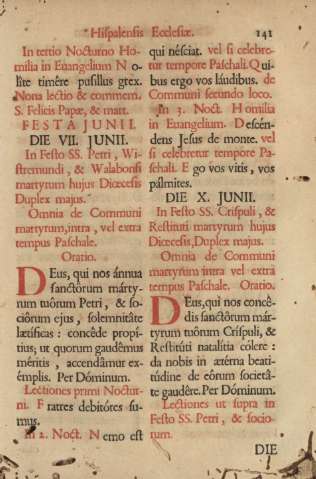 Hispalensis Ecclesiæ. 141
In tertio Nocturno Ho-
milia in Euangelium N o-
lite timére pusillus grex.
Nona lectio & commem.
S. Felicis Papæ, & matt.
FESTA JUNII.
DIE VII. JUNII.
In Festo SS. Petri, Wi-
stremundi, & Walabonsi
martyrum hujus Diœcesis
Duplex majus.
Omnia de Communi
martyrum, intra, vel extra
tempus Paschale.
Oratio.
DEus, qui nos ánnua
sanctórum márty-
rum tuórum Petri, & so-
ciórum ejus, solemnitáte
lætíficas: concéde propí-
tius; ut quorum gaudémus
méritis, accendámur ex-
émplis. Per Dóminum.
Lectiones primi Noctur-
ni. F ratres debitóres su-
mus.
In 2. Noct. N emo est
qui nésciat. vel si celebre-
tur tempore Paschali. Q ui-
bus ergo vos láudibus. de
Communi secundo loco.
In 3. Noct. Homilia
in Euangelium. D escén-
dens Jesus de monte. vel
si celebretur tempore Pa-
schali. E go vos vitis, vos
pálmites.
DIE X. JUNII.
In Festo SS. Crispuli, &
Restituti martyrum hujus
Diœcesis, Duplex majus.
Omnia de Communi
martyrum intra vel extra
tempus Paschale. Oratio.
DEus, qui nos concé-
dis sanctórum már-
tyrum tuórum Críspuli, &
Restitúti natalítia cólere:
da nobis in ætérna beati-
túdine de eórum societá-
te gaudére. Per Dóminum.
Lectiones ut supra in
Festo SS. Petri, & socio-
rum.
DIE